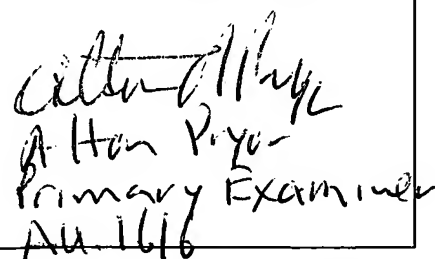 Alton Pryor
Primary Examiner
AU.1616